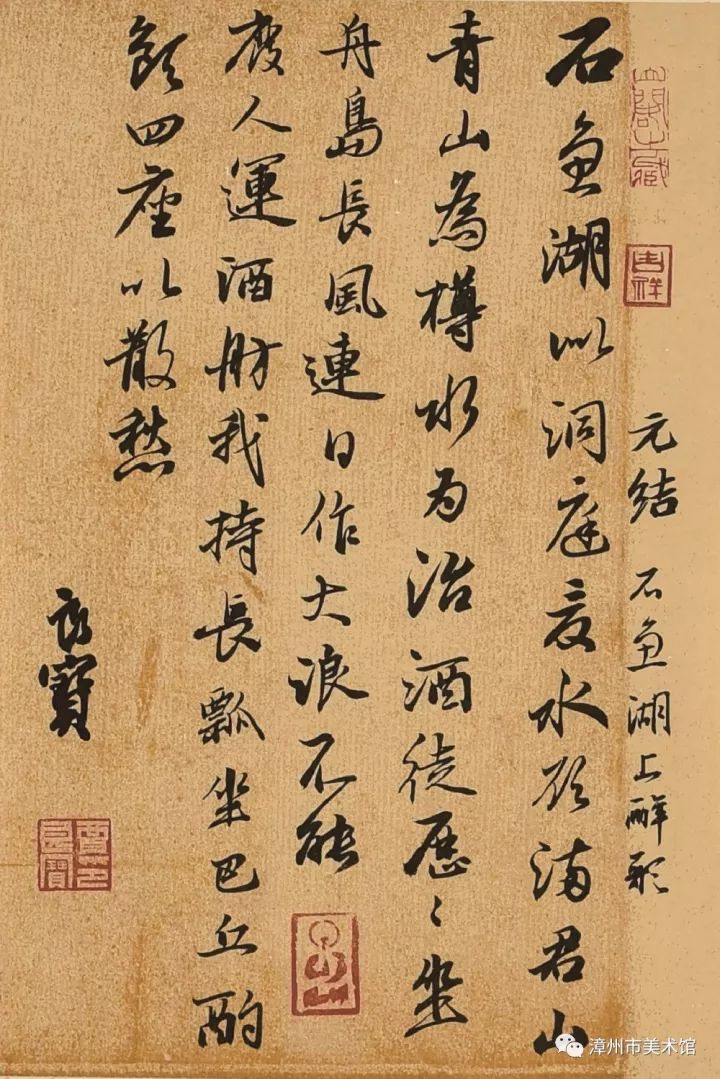 吉祥
元结 石鱼湖上醉歌
石鱼湖似洞庭夏水欲满君山
青山為樽水为沼酒徒歷〻坐
舟島長風連日作大浪不能
廢人運酒舫我持長瓢坐巴丘酌
飲四座以散愁
良寶
漳州市美术馆